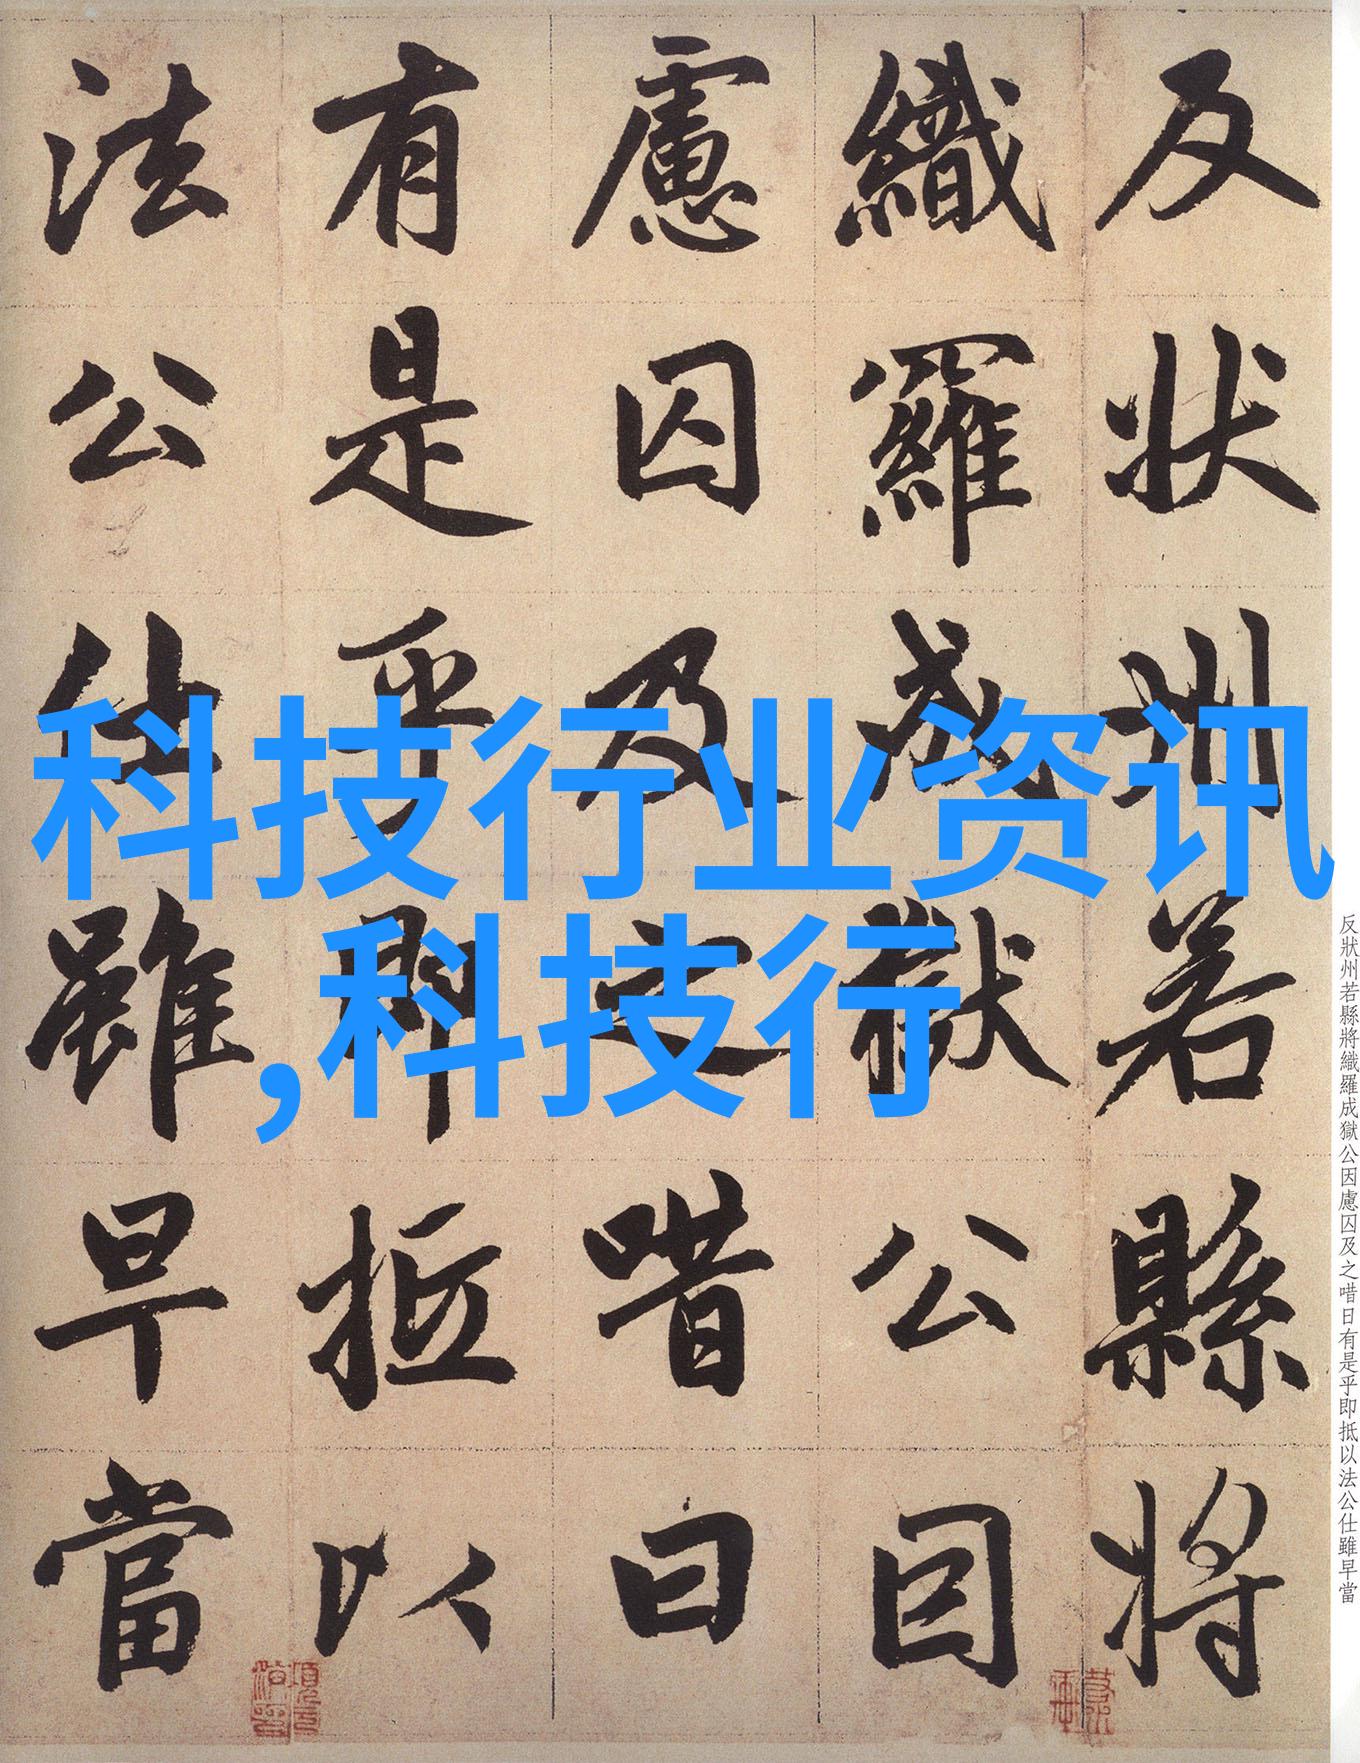 反狀州若縣將
織羅成獄公因
慮囚及之唶曰
有是乎即抵以
法公仕雖早當
科技行业资讯
,科技行
反狀州若縣將織羅成獄公因慮囚及之唶日有是乎即抵以法公仕雖早當